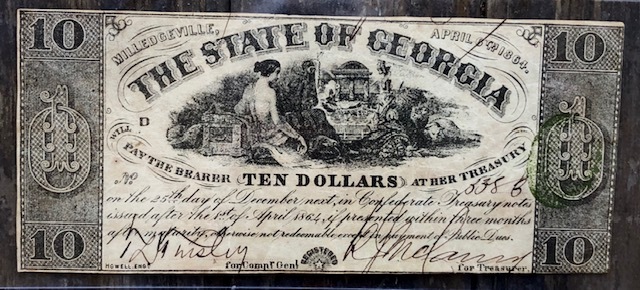 10 10
MILLEDGEVILLE, APRIL 6th 1864.
THE STATE OF GEORGIA
D
WILL PAY THE BEARER TEN DOLLARS AT HER TREASURY
No 5386
on the 25th day of December next, in Confederate Treasury notes
issued after the 1st of April 1864, if presented within three months
after maturity, otherwise not redeemable except in payment of Public Dues.
for Compr Genl REGISTERED for Treasurer.
HOWELL. ENGR
10 10